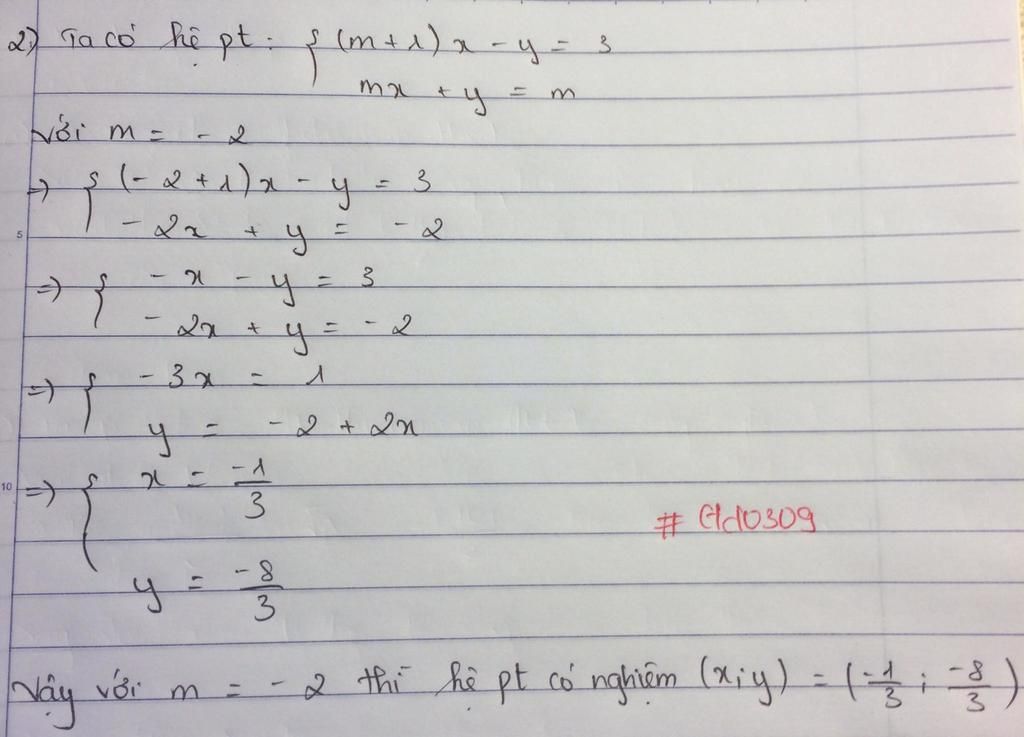 2) Ta có hệ pt: { (m+1)x - y = 3
mx + y = m
Với m = -2
=> { (-2+1)x - y = 3
-2x + y = -2
5
=> { -x - y = 3
-2x + y = -2
=> { -3x = 1
y = -2 + 2x
10
=> { x = -1/3
y = -8/3
Vậy với m = -2 thì hệ pt có nghiệm (x;y) = (-1/3 ; -8/3)